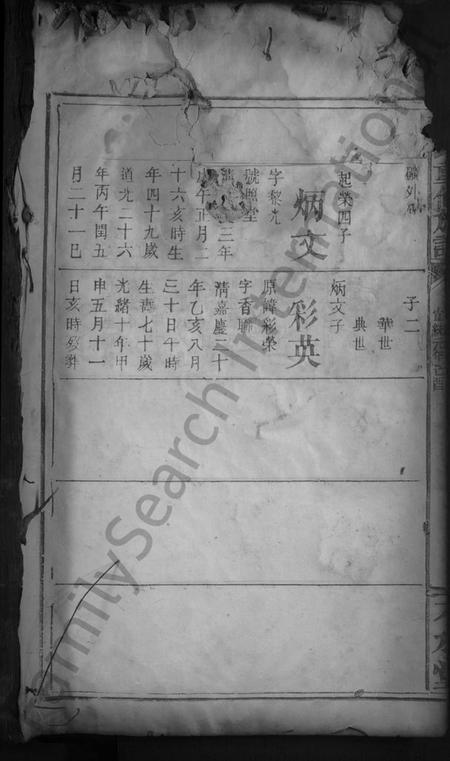 起榮四子
炳文
字黎光
號照堂
三年
午正月二
十六亥時生
年四十九歲
道光二十六
年丙午閏五
月二十一巳
子二
華世
典世
炳文子
彩英
原諱彩榮
字香聯
清嘉慶二十
年乙亥八月
三十日午時
生壽七十歲
光緒十年甲
申五月十一
日亥時終葬
FamilySearch International